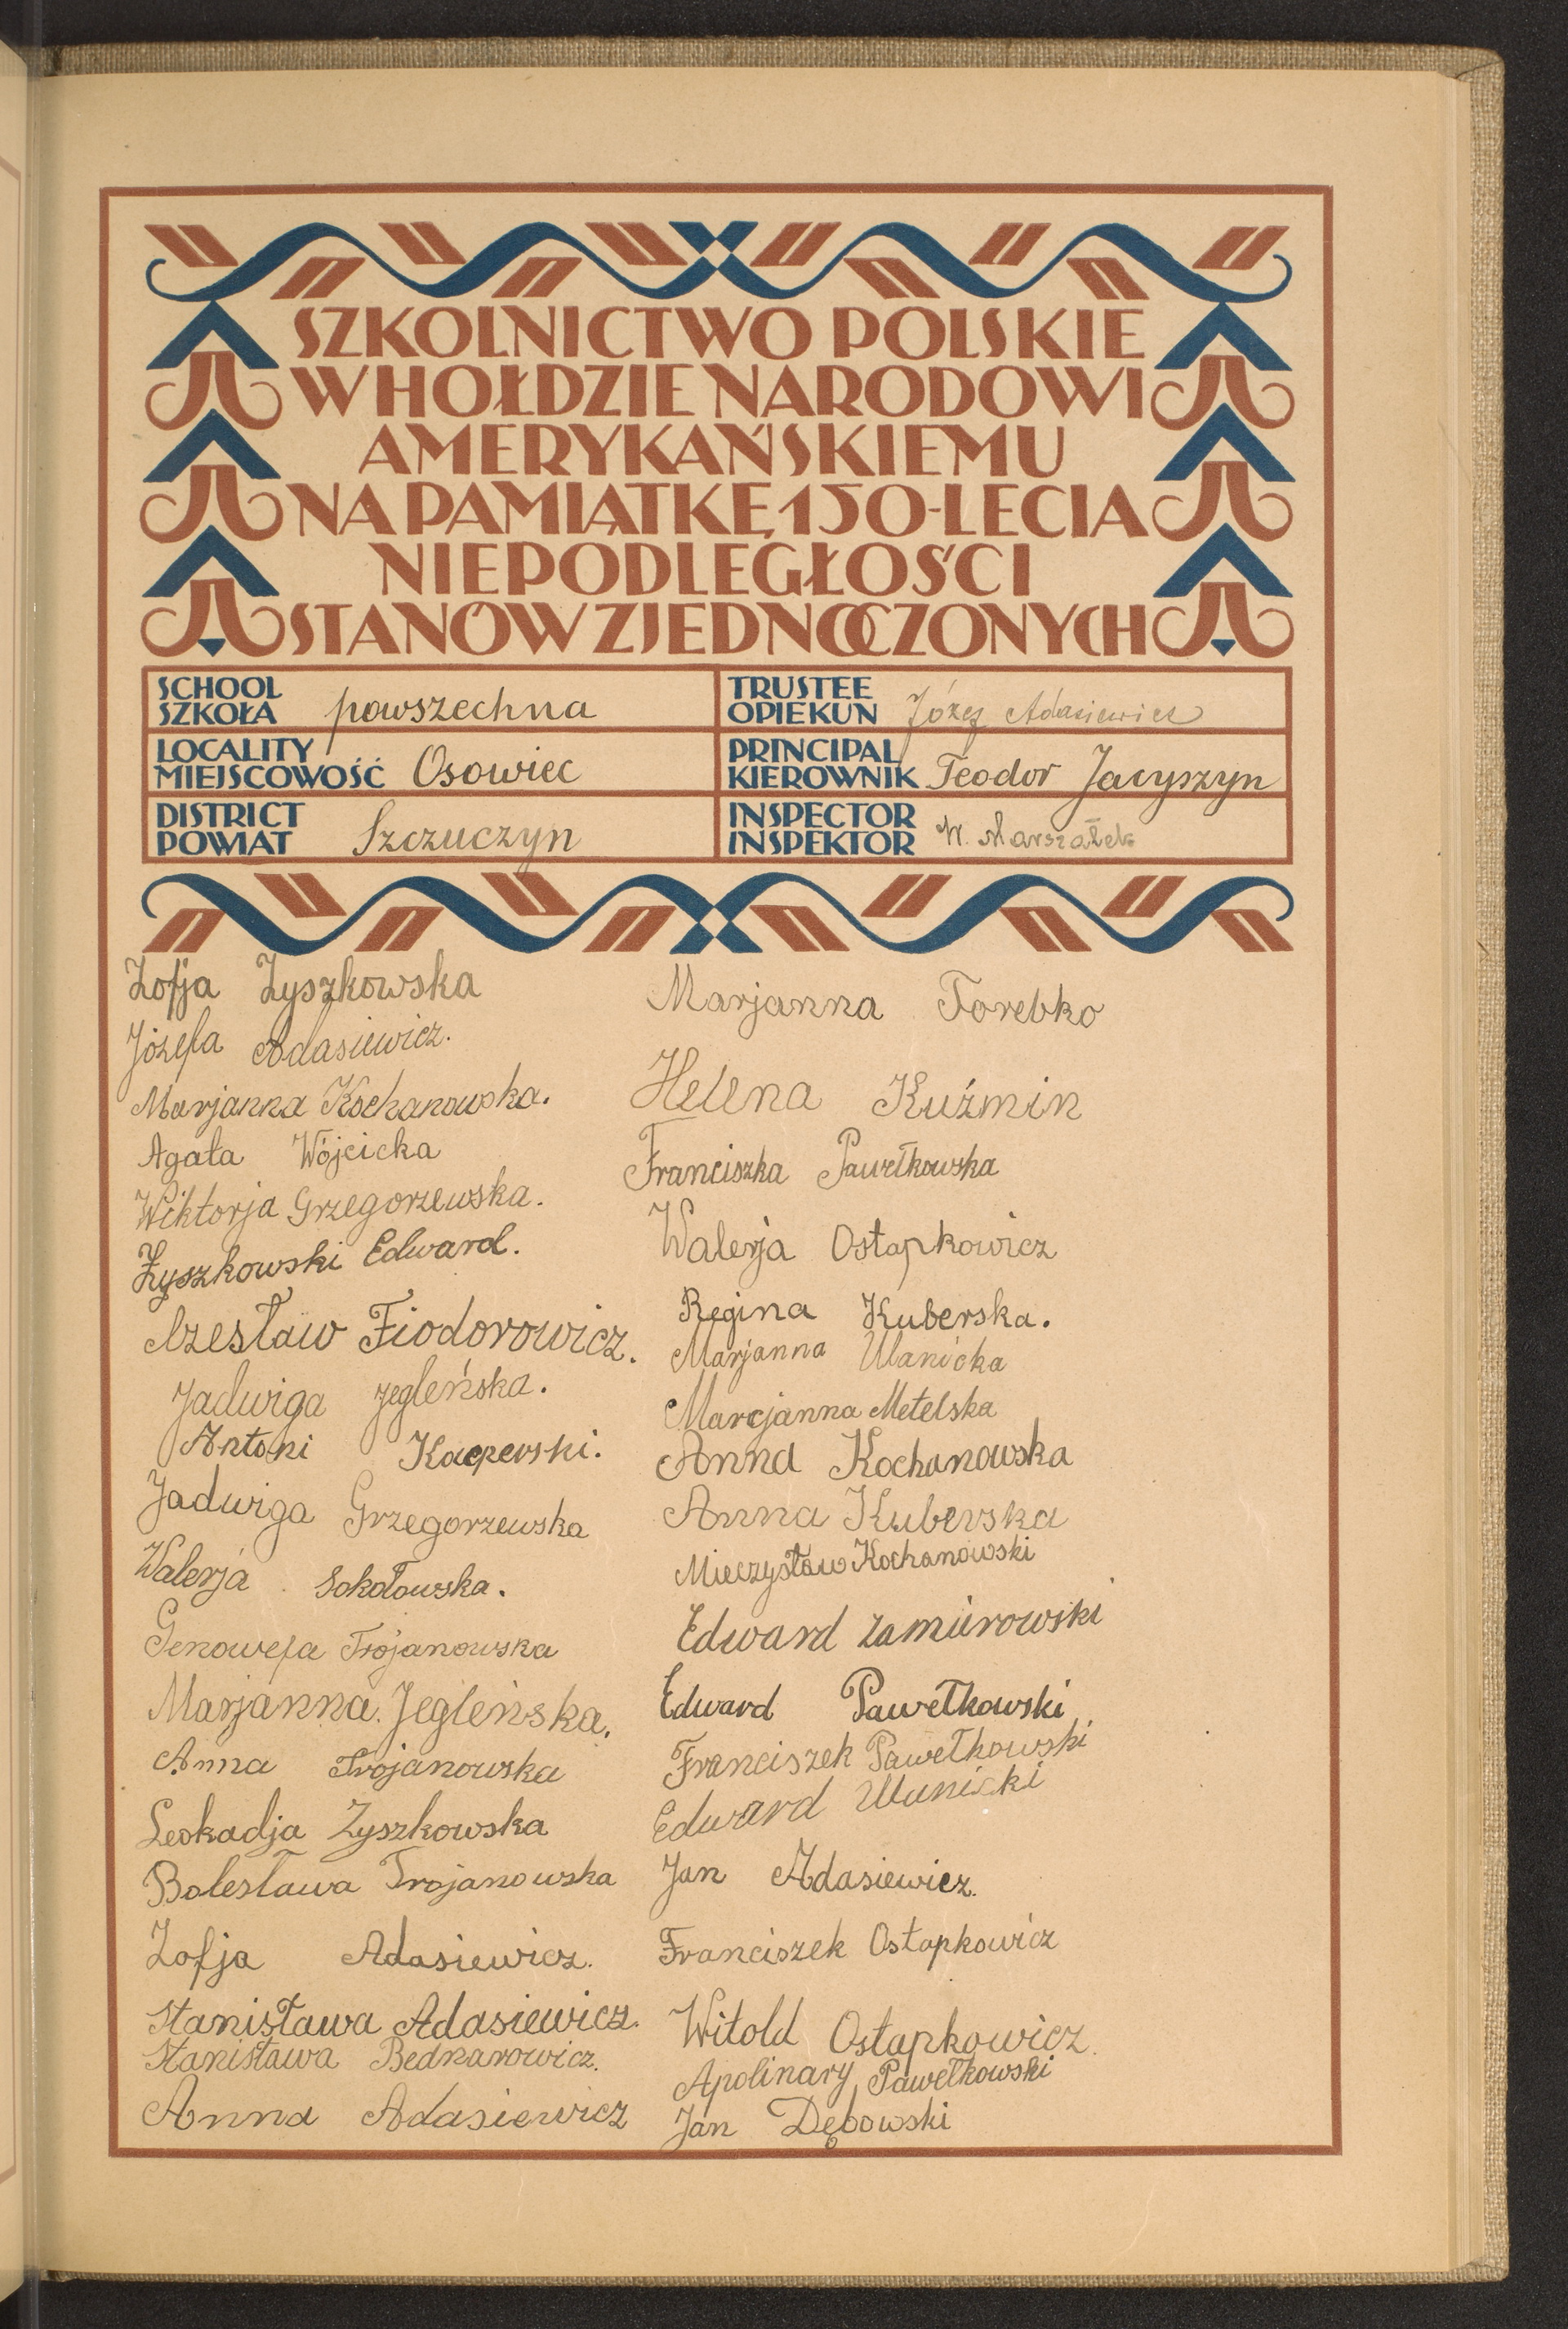 SZKOLNICTWO POLSKIE
W HOŁDZIE NARODOWI
AMERYKAŃSKIEMU
NA PAMIĄTKĘ 150-LECIA
NIEPODLEGŁOŚCI
STANÓW ZJEDNOCZONYCH
SCHOOL
SZKOŁA powszechna
TRUSTEE
OPIEKUN Józef Adasiewicz
LOCALITY
MIEJSCOWOŚĆ Osowiec
PRINCIPAL
KIEROWNIK Teodor Jacyszyn
DISTRICT
POWIAT Szczuczyn
INSPECTOR
INSPEKTOR W. Marszałek
Zofja Zyszkowska
Józefa Adasiewicz.
Marjanna Kochanowska.
Agata Wójcicka
Wiktorja Grzegorzewska.
Zyszkowski Edward.
Czesław Fiodorowicz.
Jadwiga Jegleńska.
Antoni Kacperski.
Jadwiga Grzegorzewska
Walerja Sokołowska.
Genowefa Trojanowska
Marjanna Jegleńska.
Anna Trojanowska
Leokadja Zyszkowska
Bolesława Trojanowska
Zofja Adasiewicz.
Stanisława Adasiewicz.
Stanisława Bednarowicz.
Anna Adasiewicz
Marjanna Torebko
Helena Kuźmin
Franciszka Pawełkowska
Walerja Ostapkowicz
Regina Kuberska.
Marjanna Ulanicka
Marcjanna Metelska
Anna Kochanowska
Anna Kuberska
Mieczysław Kochanowski
Edward Zamiurowski
Edward Pawełkowski
Franciszek Pawełkowski
Edward Ulanicki
Jan Adasiewicz.
Franciszek Ostapkowicz
Witold Ostapkowicz.
Apolinary Pawełkowski
Jan Dębowski